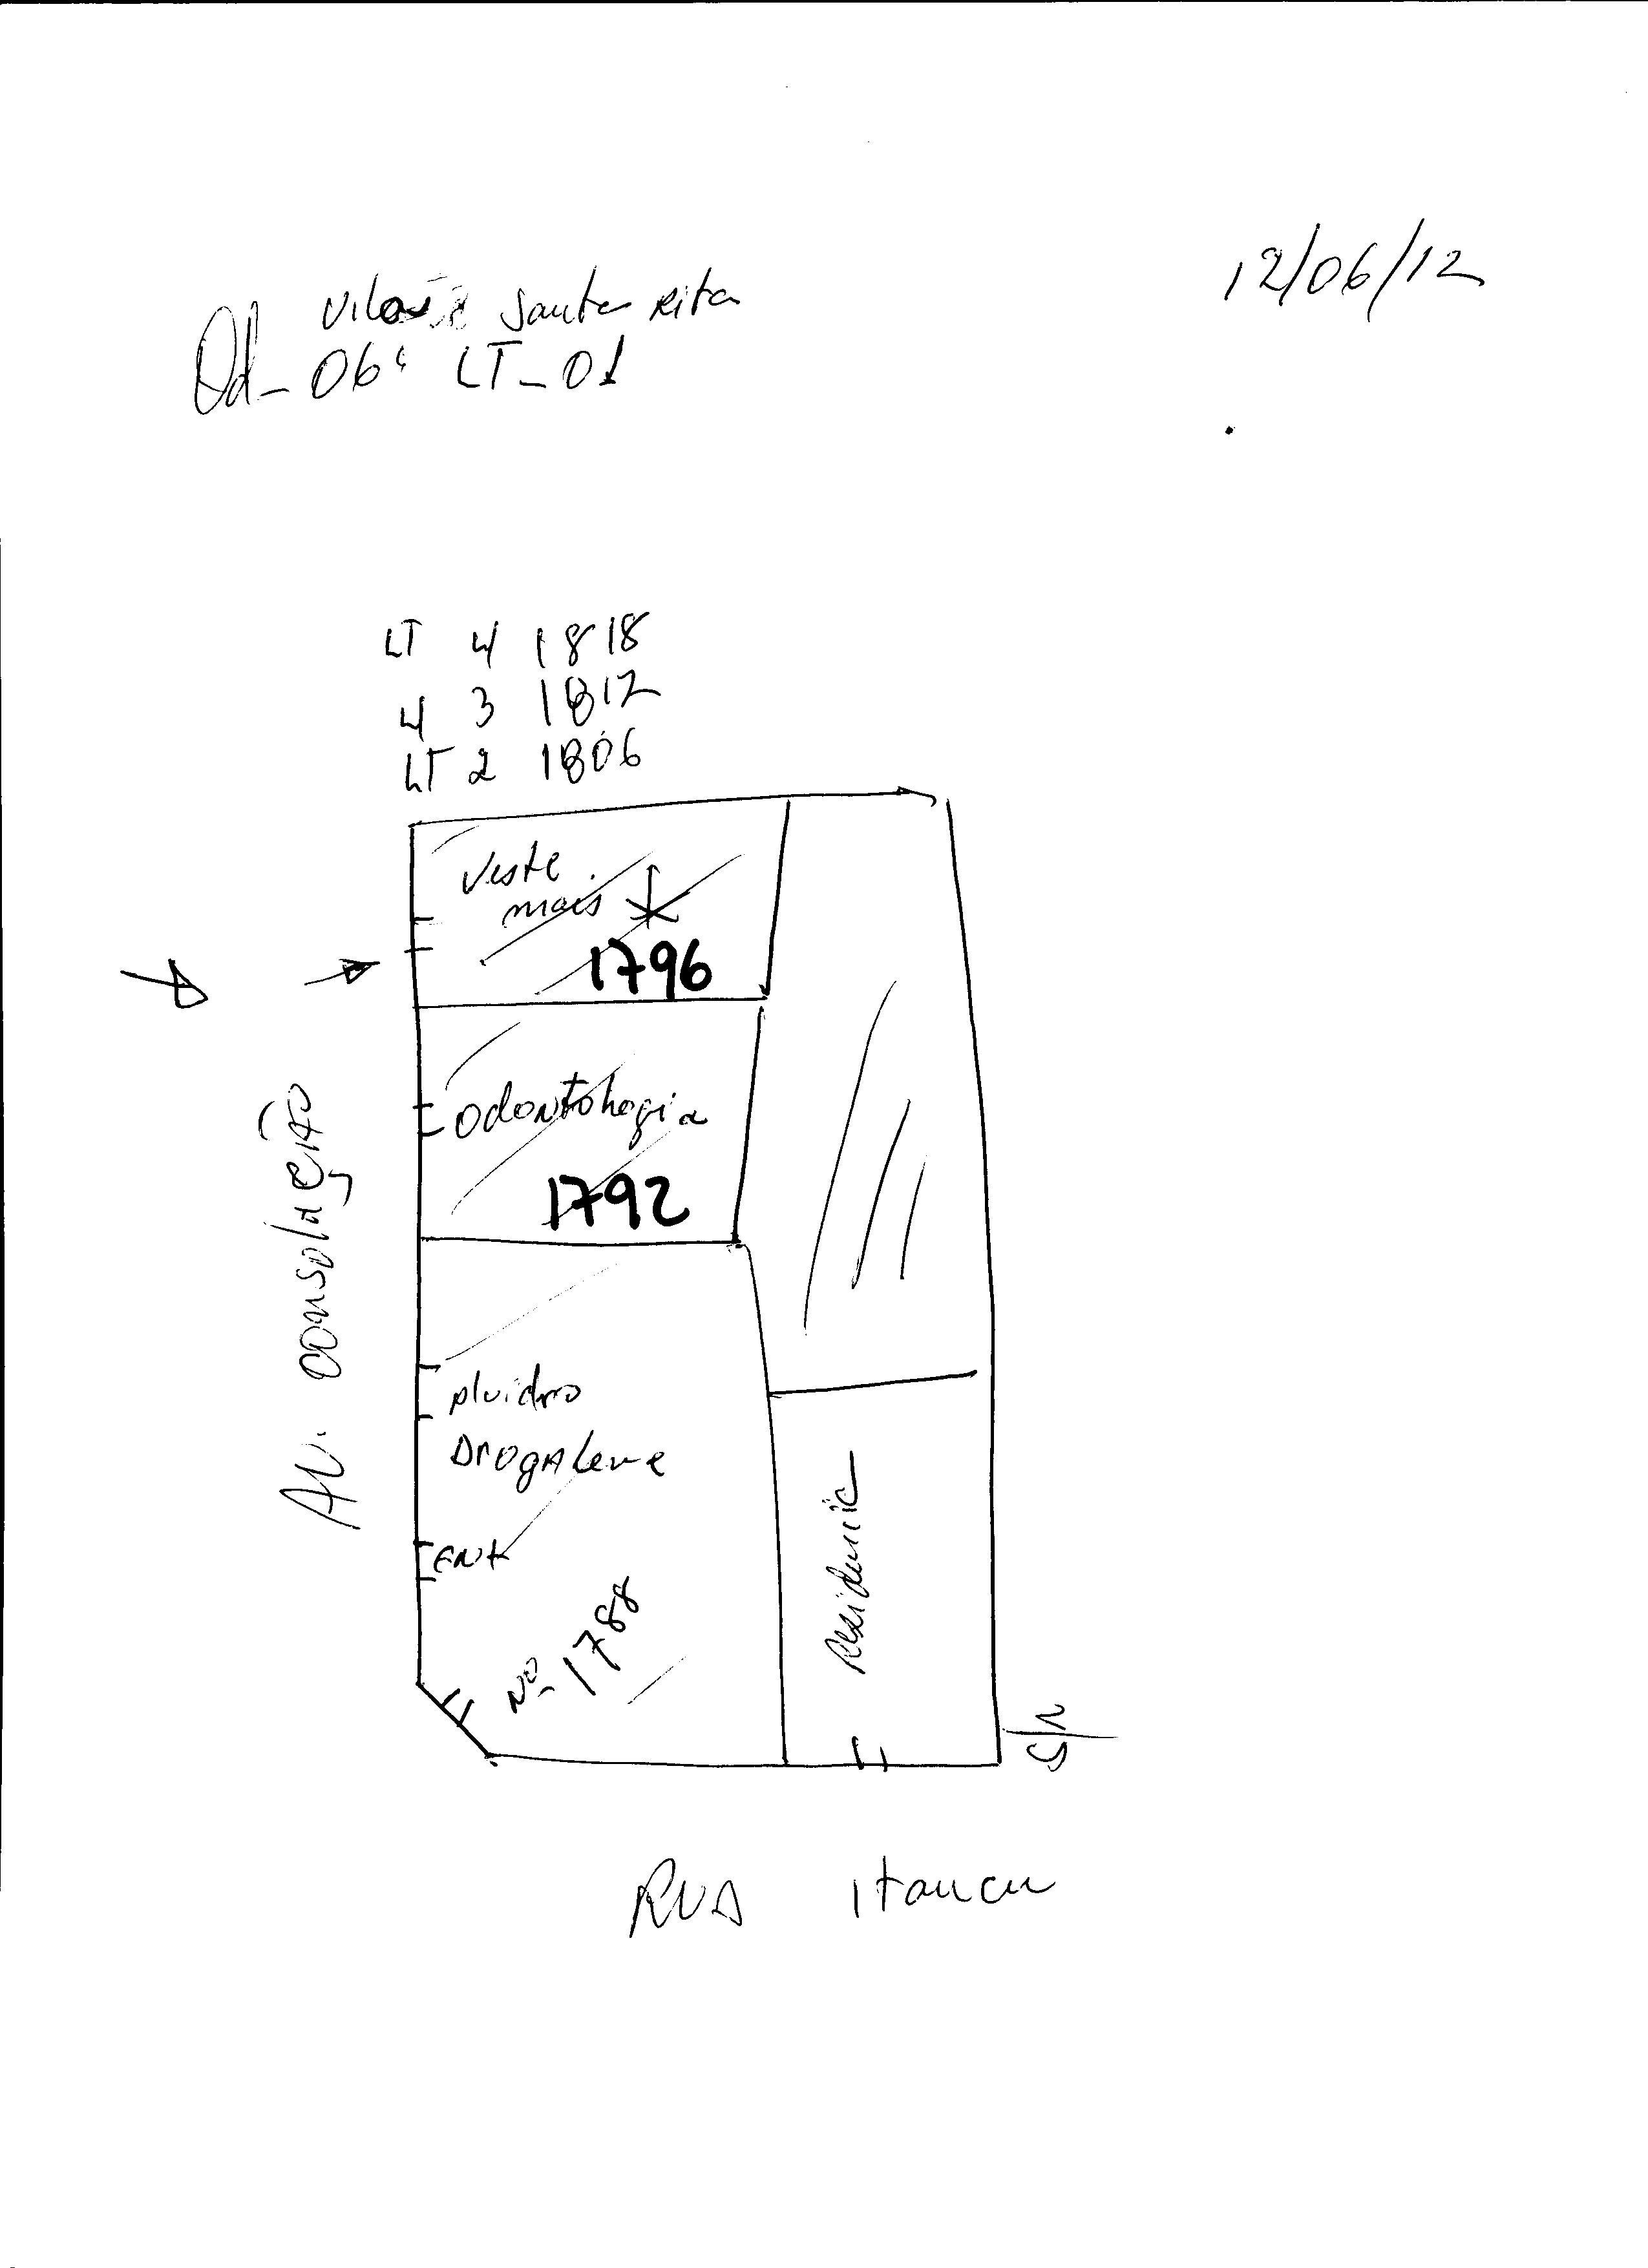 12/06/12
Vila Santa Rita
Qd- 06 LT- 01
LT 4 1818
4 3 1812
LT 2 1806
Veste
mais
1796
Odontologia
1792
Av. consolação
Drogaleve
ENT
Nº- 1788
Residencia
S/N
RUA Itaucu